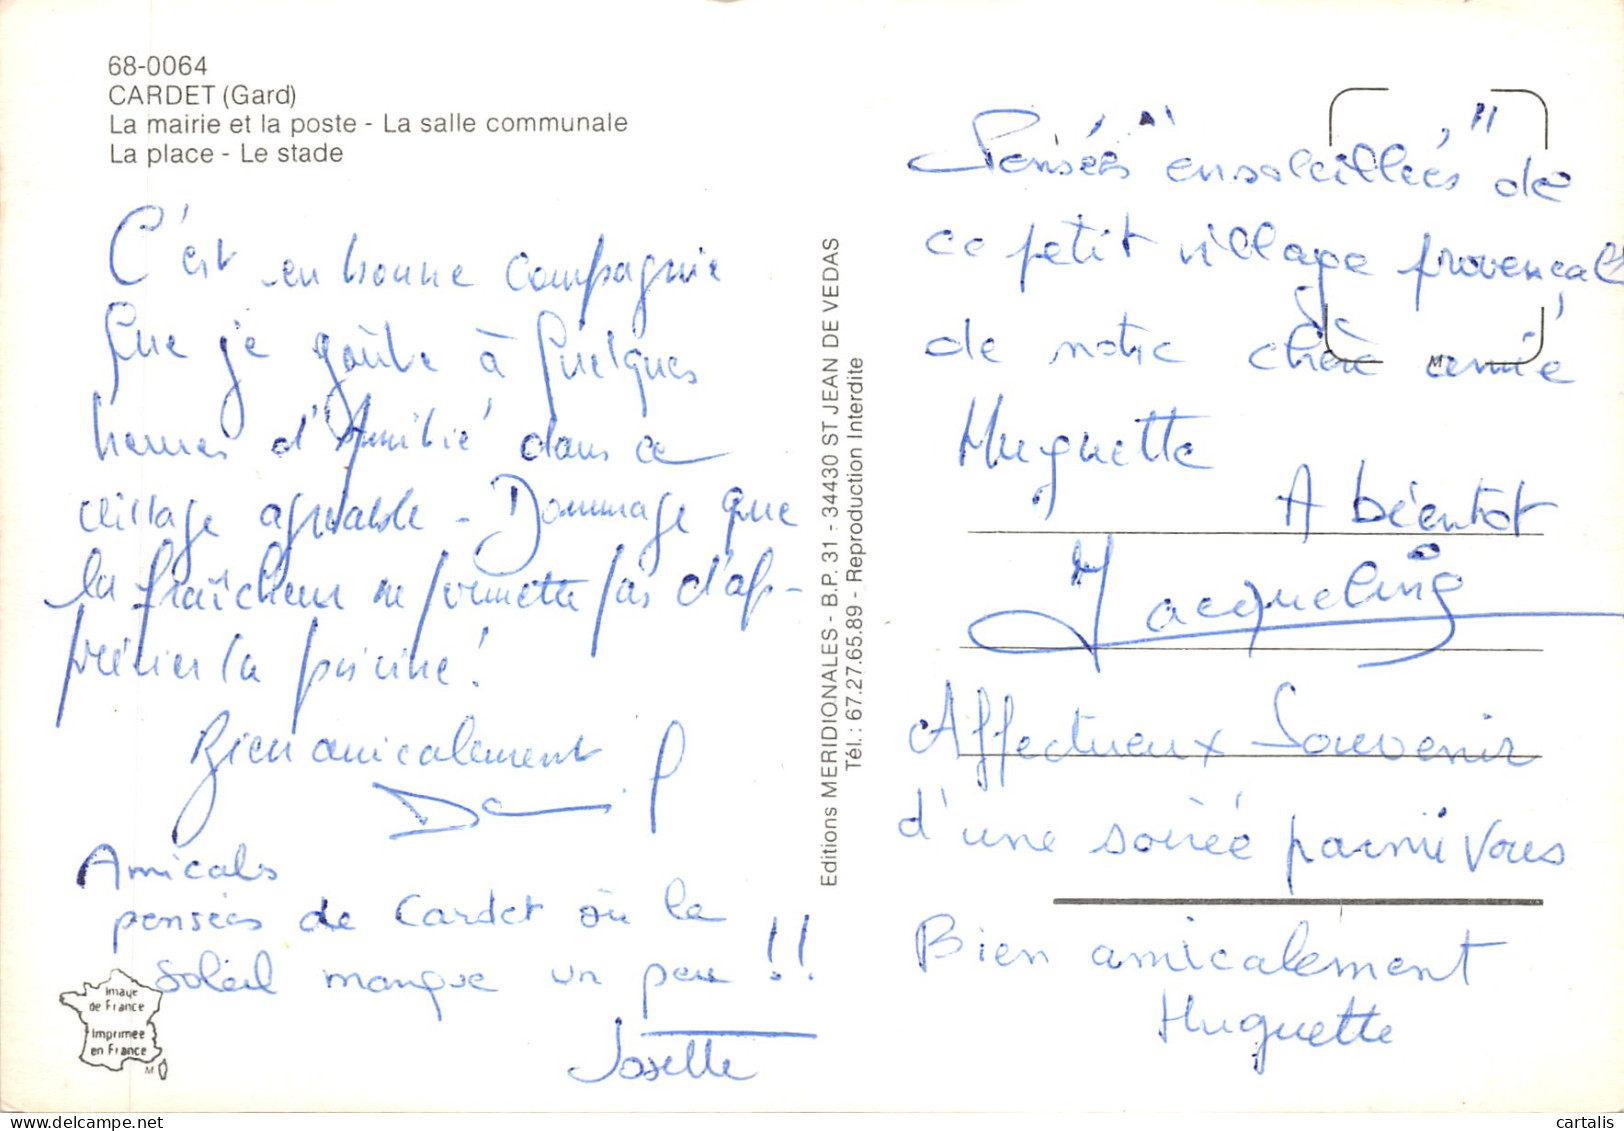 68-0064
CARDET (Gard)
La mairie et la poste - La salle communale
La place - Le stade
C'est en bonne compagnie
que je goûte à quelques
heures d'Amitié dans ce
village agréable - Dommage que
la fraîcheur ne permette pas d'ap-
précier la piscine!
Bien amicalement
Amicales
pensées de Cardet où le
soleil manque un peu !!
Josette
Image
de France
Imprimée
en France
M
Editions MERIDIONALES - B.P. 31 - 34430 ST JEAN DE VEDAS
Tél.: 67.27.65.89 - Reproduction Interdite
Pensées "ensoleillées" de
ce petit village provençal
de notre chère amie
M
Huguette
A bientôt
Jacqueline
Affectueux Souvenir
d'une soirée parmi vous
Bien amicalement
Huguette
cartalis